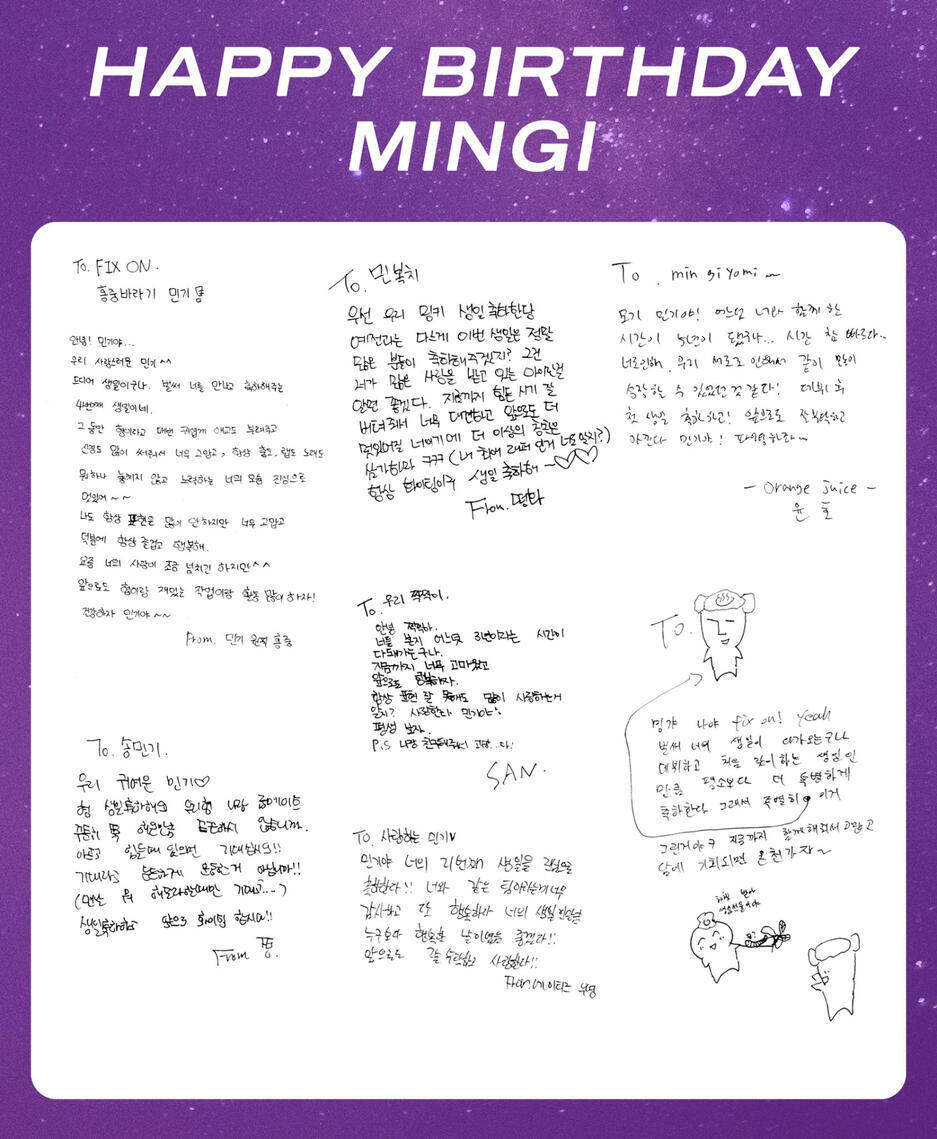 HAPPY BIRTHDAY
MINGI
To. FIX ON.
홍중바라기 민기
안녕! 민기야...
우리 사랑스러운 민기^^
드디어 생일이구나. 벌써 너를 만나고 축하해주는
4번째 생일이네.
그동안 형이라고 매번 귀엽게 애교도 부려주고
신경도 많이 써줘서 너무 고맙고, 항상 춤도, 랩도 노래도
뭐하나 놓치지 않고 노력하는 너의 모습 진심으로
멋있어~~
나도 항상 표현은 많이 안하지만 너무 고맙고
덕분에 항상 즐겁고 행복해.
요즘 너의 사랑이 조금 넘치긴 하지만^^
앞으로도 형이랑 재밌는 작업이랑 활동 많이 하자!
건강하자 민기야~~
From. 민기 원픽 홍중
To. 민복치
우선 우리 밍키 생일 축하한당
예전과는 다르게 이번 생일은 정말
많은 분들이 축하해주겠지? 그건
네가 많은 사랑을 받고 있는 아이인걸
알면 좋겠다. 지금까지 힘든 시기 잘
버텨줘서 너무 대견하고 앞으로 더
멋있어질 너이기에 더 이상의 칭찬은
생략하마 ㅋㅋㅋ (내 최애 래퍼 인거 너도 알지?)
항상 화이팅이구 생일 축하해~♡♡
From.
To. min gi yomi~
모기 민기야! 어느덧 너와 함께 한
시간이 5년이 됐구나... 시간 참 빠르다..
너로인해, 우리 서로로 인해서 같이 많이
성장할 수 있었던 것 같다! 데뷔 후
첫 생일 축하하고! 앞으로도 잘 부탁하고
가즈아 민기야! 파이팅하라~
- Orange juice -
윤호
To. 우리 짝짝이.
안녕 짝짝아.
너를 본지 어느덧 3년이라는 시간이
다돼가는구나.
지금까지 너무 고마웠고
앞으로도 행복하자.
항상 표현 잘 못해도 많이 사랑하는거
알지? 사랑한다 민기야
평생 보자.
P.S 나랑 친구해주서 고맙..다!
SAN.
To.
밍갸 나야 fix on! Yeah
벌써 너의 생일이 다가오는구나
데뷔하고 처음 맞이하는 생일인
만큼 평소보다 더 특별하게
축하한다 그래서 특별히 이거
그린거야ㅋ 지금까지 함께해줘서 고맙고
담에 기회되면 온천가자~
To. 송민기.
우리 귀여운 민기♡
형 생일축하해요 우리형 나랑 룸메이트
아프고 힘든때 있으면 기대십시요!!
기대라고 운동하는거 아닙니까!!
생일축하하고 앞으로 화이팅 합시다!!
From 쫑.
To. 사랑하는 민기♥
민기야 너의 21번째 생일을 진심으로
축하한다!! 너와 같은 팀이라는게 너무
감사하고 또 행복하다 너의 생일 만큼은
누구보다 행복한 날이었음 좋겠다!!
앞으로도 잘 부탁하고 사랑한다!!
From. 에이티즈 우영